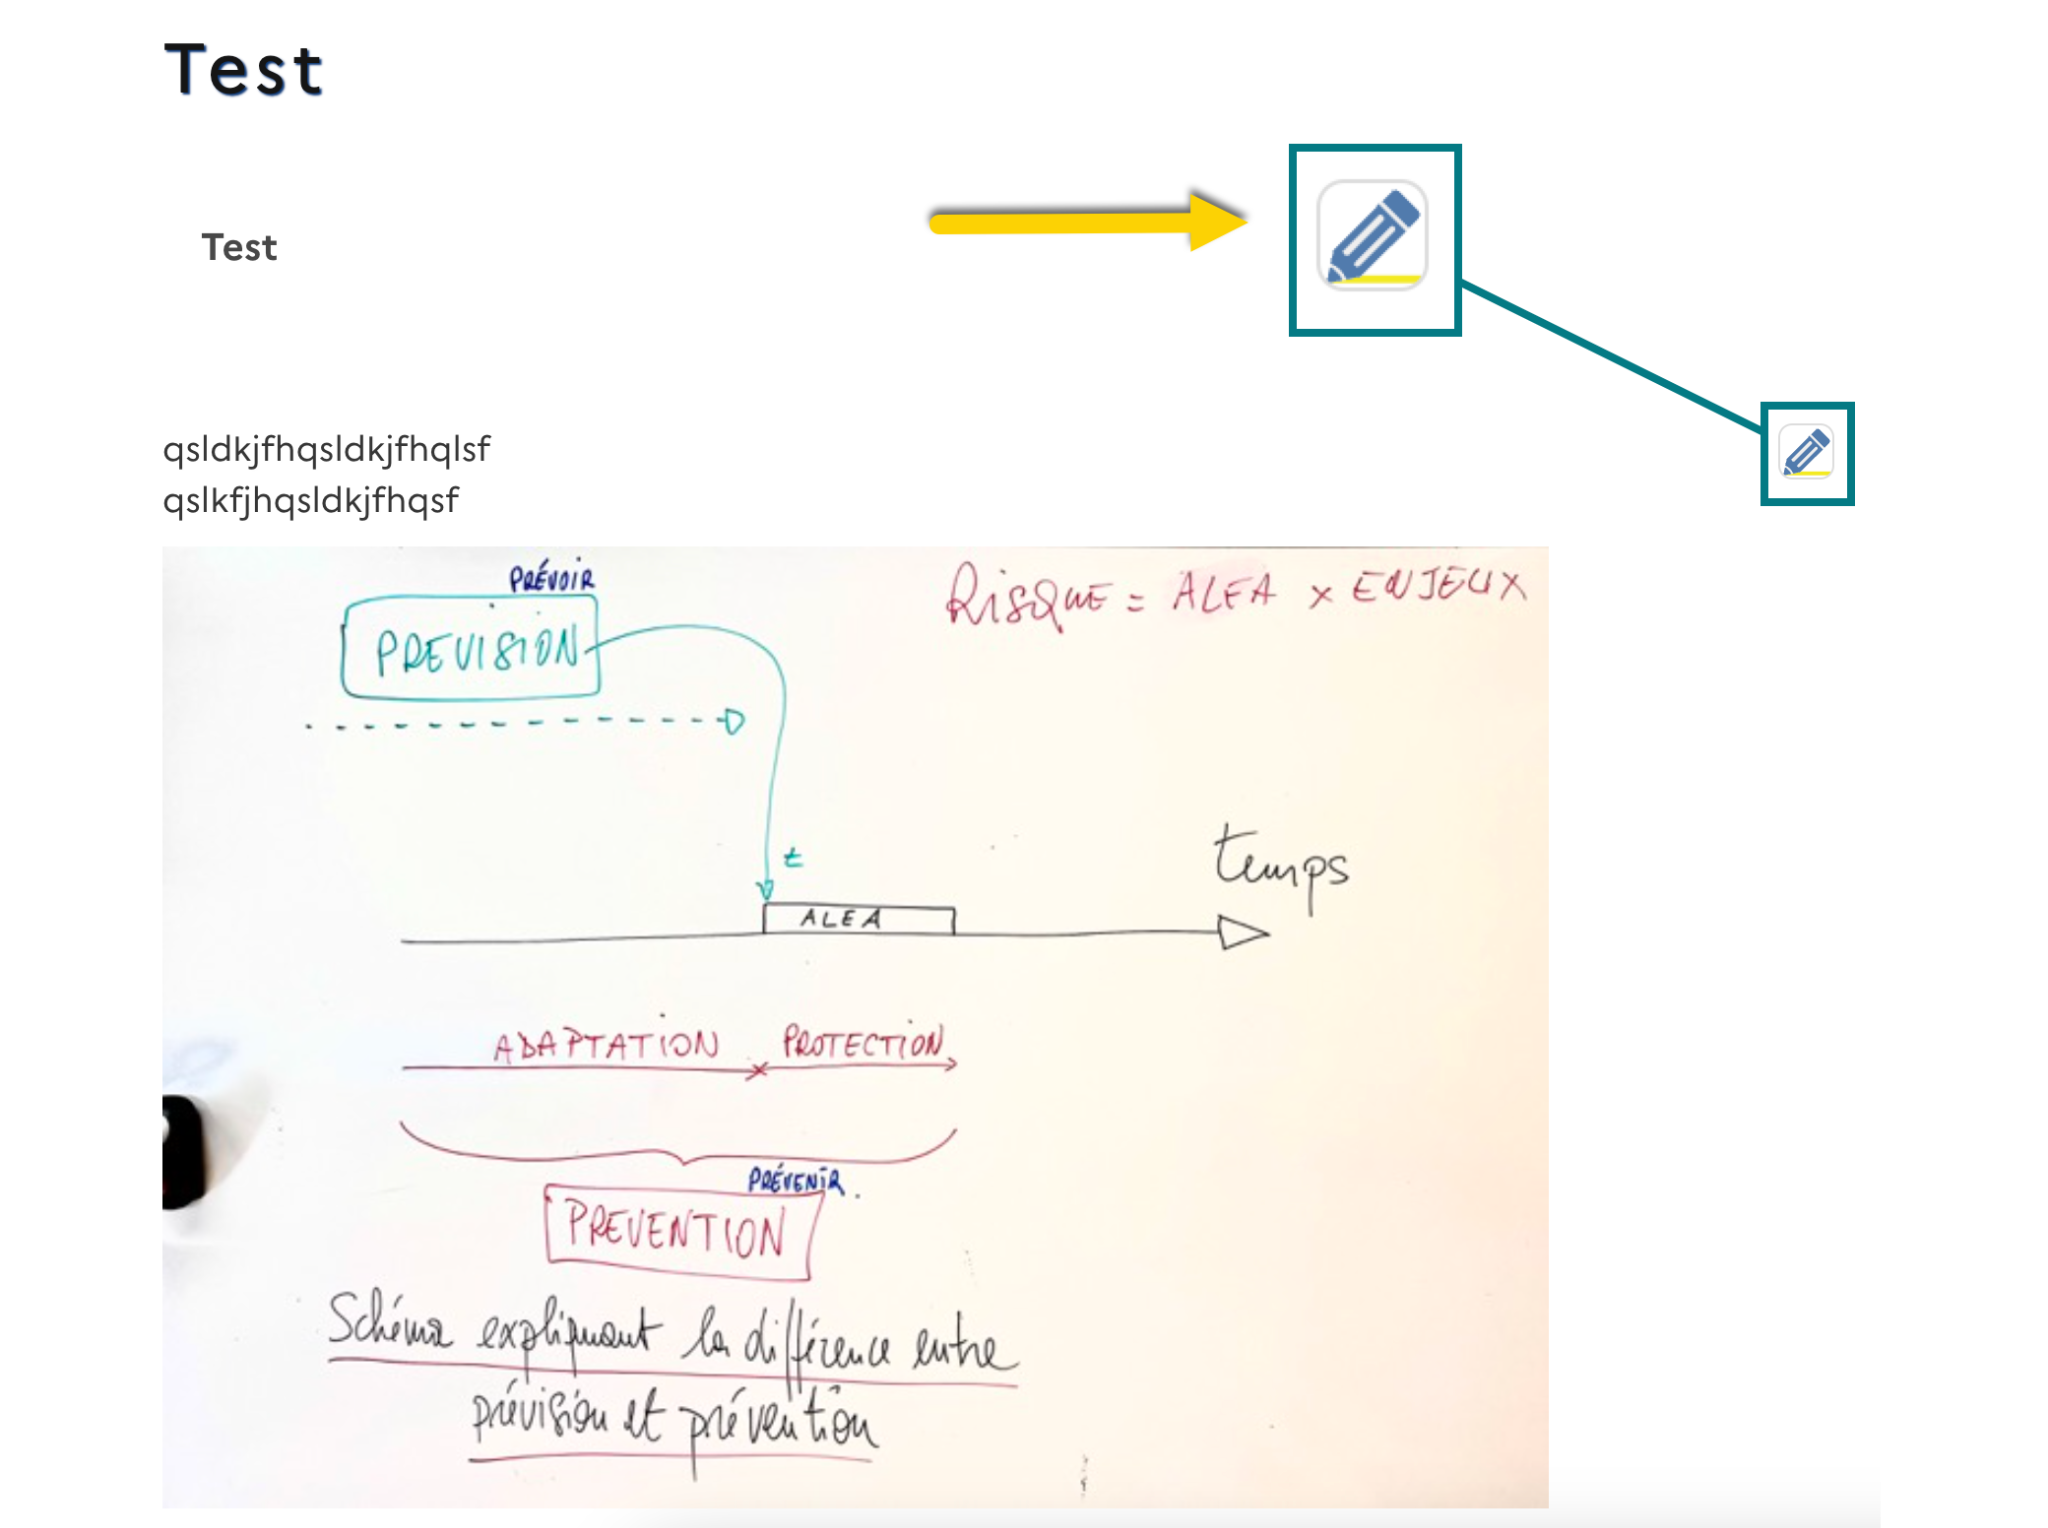 Test
Test
qsldkjfhqsldkjfhqlsf
qslkfjhqsldkjfhqsf
PRÉVOIR
RISQUE = ALEA x ENJEUX
PREVISION
t
temps
ALEA
ADAPTATION
PROTECTION
PRÉVENIR.
PREVENTION
Schéma expliquant la différence entre
prévision et prévention